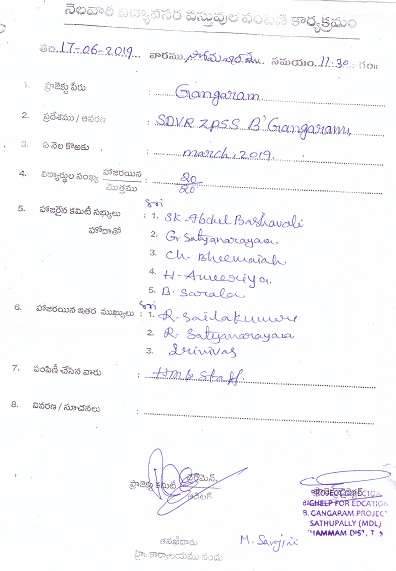 నెలవారీ విద్యావసర వస్తువుల పంపిణీ కార్యక్రమం
తేది: 17-06-2019 వారము సోమవారము సమయం. 11-30 గం॥
1. ప్రాజెక్టు పేరు : Gangaram
2. ప్రదేశము / ఆవరణ : SDVR ZPSS B' Gangaram
3. ఏ నెల కొఱకు : march, 2019
4. విద్యార్థుల సంఖ్య హాజరయిన / మొత్తము : 20/20
5. హాజరైన కమిటీ సభ్యులు : 1. SK. Abdul Bashavali
హోదాతో 2. G. Satyanarayana
3. Ch. Bheemaiah
4. H. Ameeriya.
5. B. Sarala
6. హాజరయిన ఇతర ముఖ్యులు : 1. R. Sailakumari
2. R. Satyanarayana
3. Srinivas
7. పంపిణీ చేసిన వారు : HM & Staff
8. వివరణ / సూచనలు :
ప్రాజెక్టు కమిటీ చైర్మెన్,
తనఖీదారు
హై. కార్యాలయము నందు
M. Sarojini
BIGHELP FOR EDCATION
B. GANGARAM PROJECT
SATHUPALLY (MDL)
KHAMMAM DIST, T.S